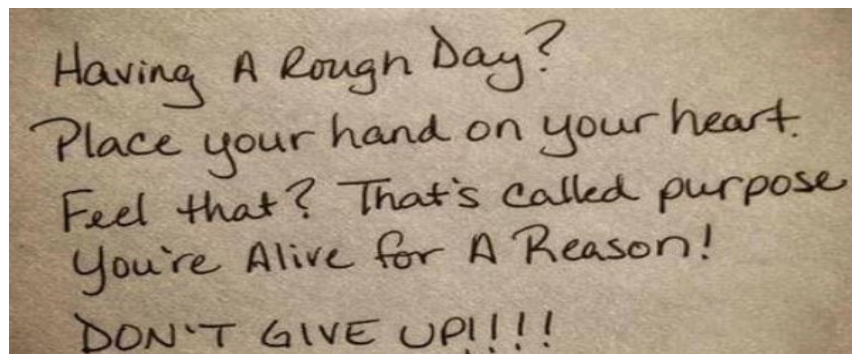 Having A Rough Day?
Place your hand on your heart.
Feel that? That's called purpose
You're Alive for A Reason!
DON'T GIVE UP!!!!